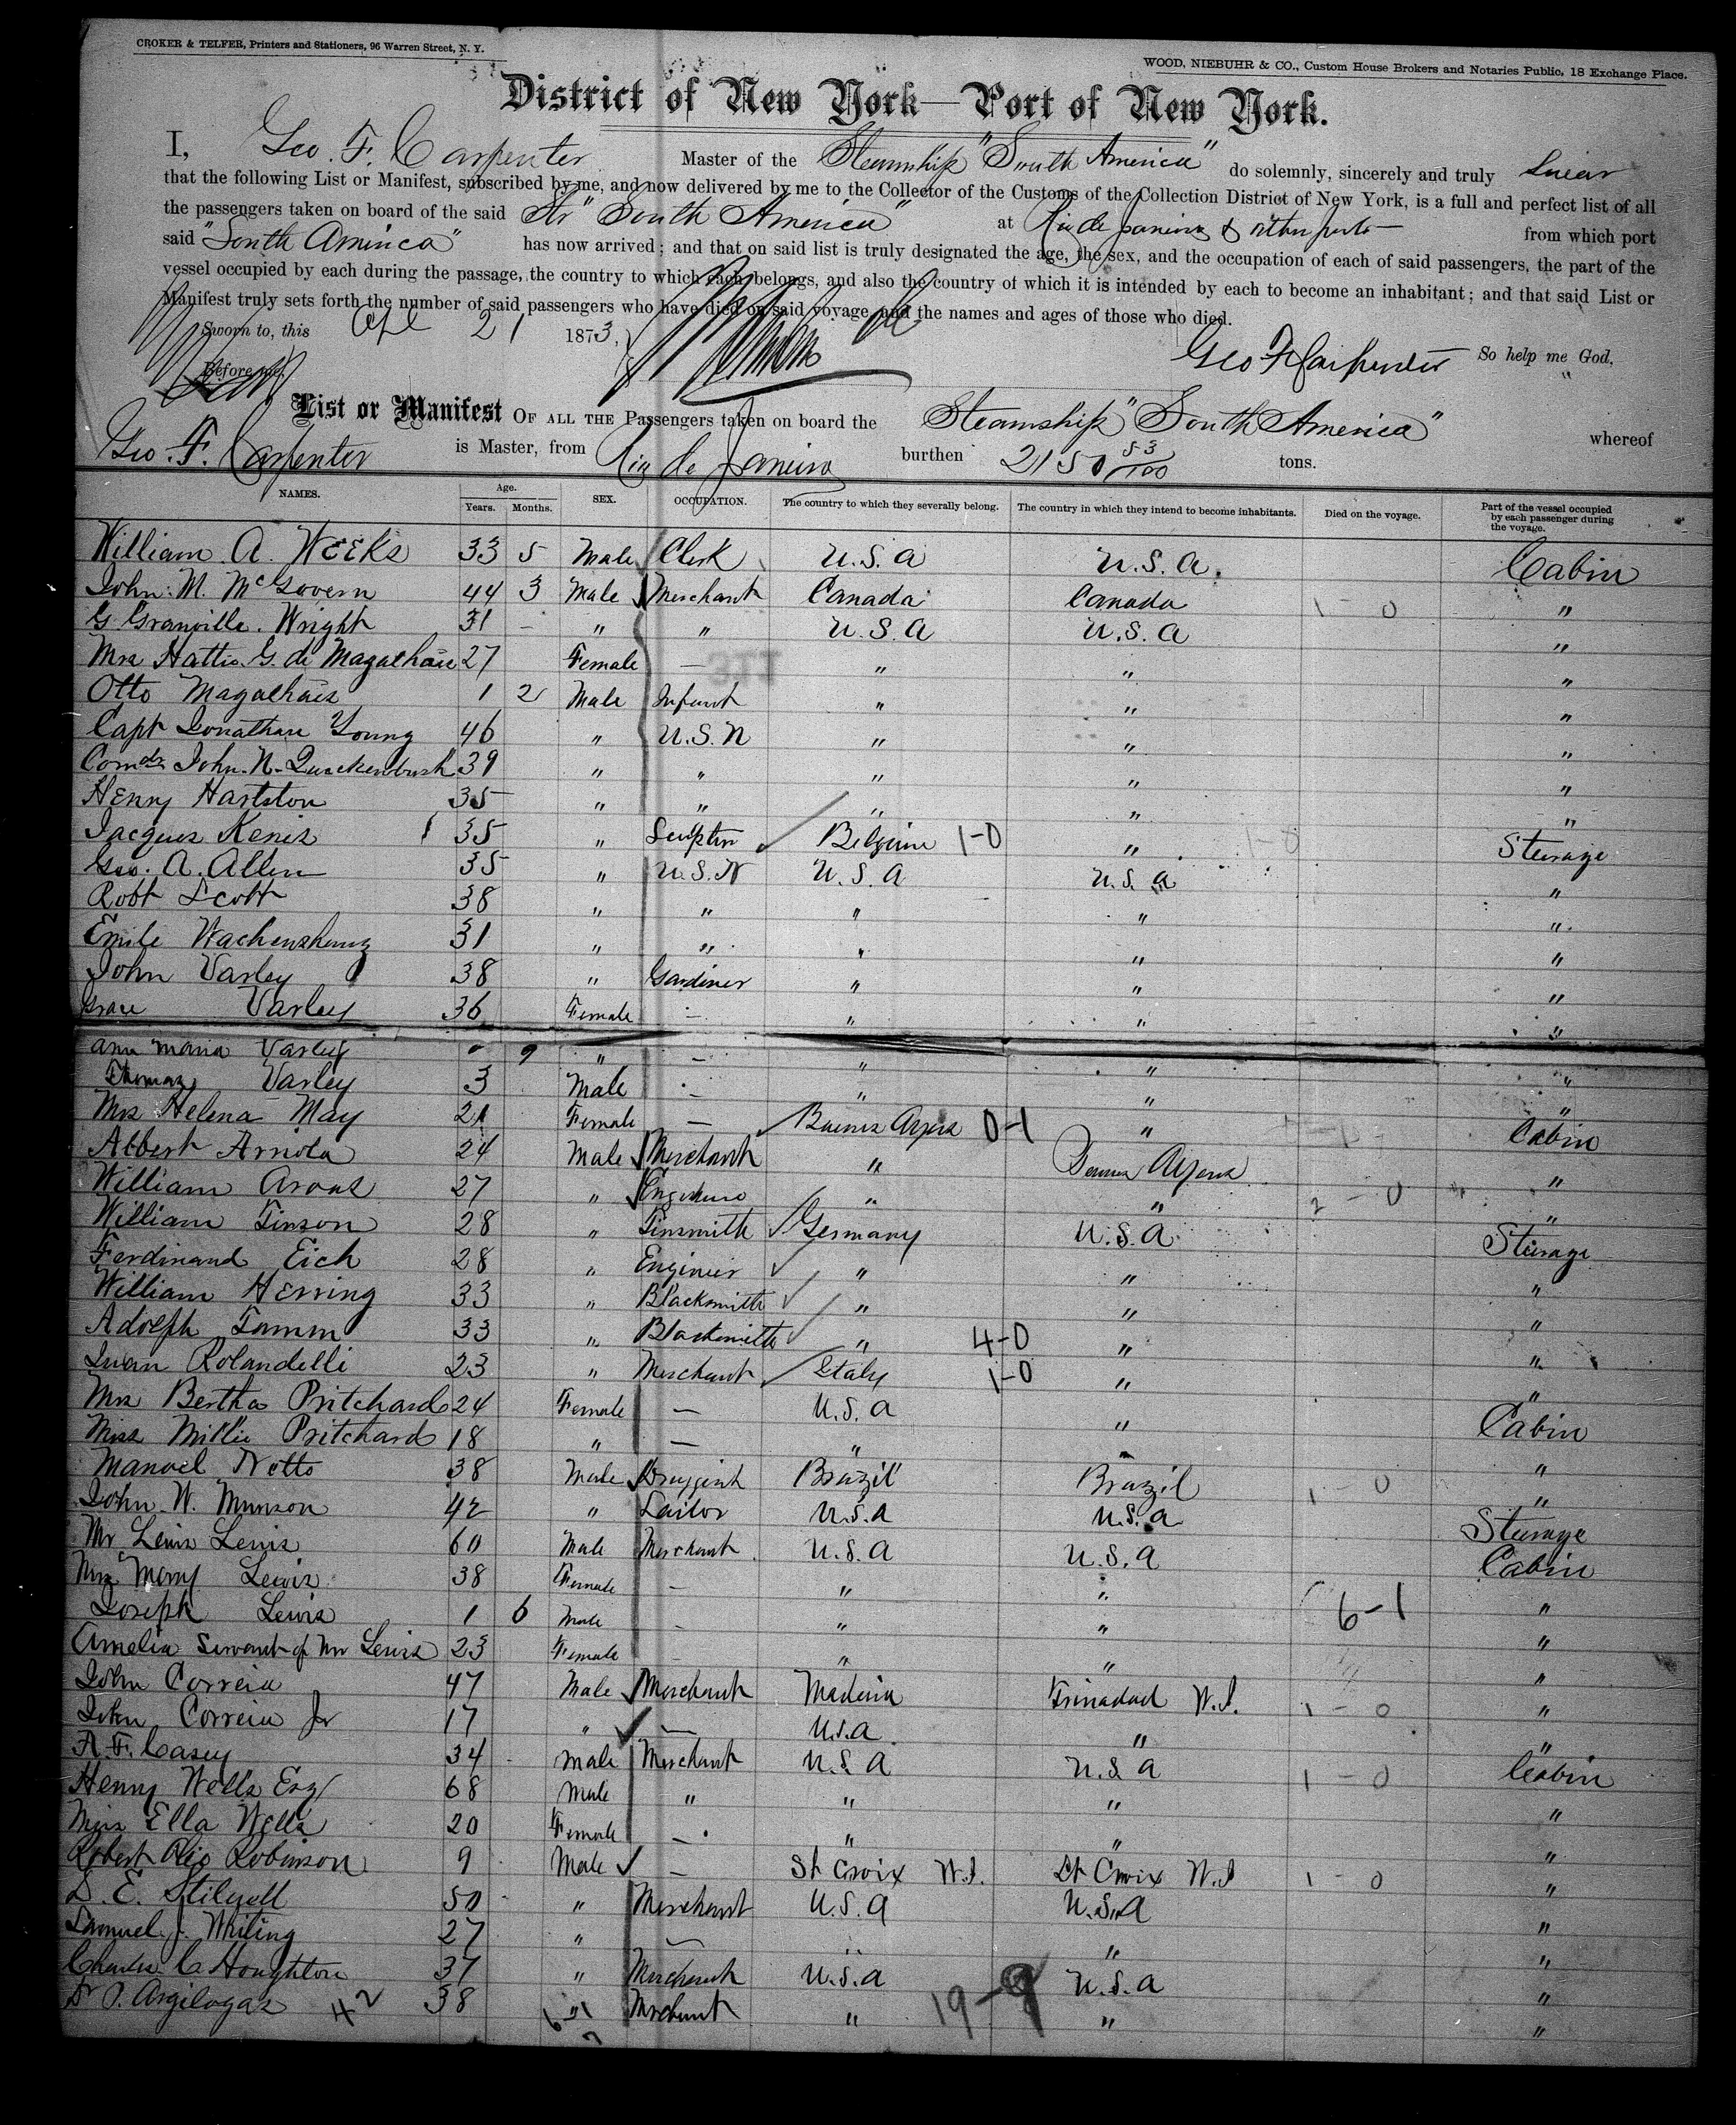 CROKER & TELFER, Printers and Stationers, 96 Warren Street, N. Y.
WOOD, NIEBUHR & CO., Custom House Brokers and Notaries Public, 18 Exchange Place.
District of New York—Port of New York.
I, Geo. F. Carpenter Master of the Steamship "South America" do solemnly, sincerely and truly Swear
that the following List or Manifest, subscribed by me, and now delivered by me to the Collector of the Customs of the Collection District of New York, is a full and perfect list of all
the passengers taken on board of the said Str "South America" at Rio de Janeiro & other ports — from which port
said "South America" has now arrived; and that on said list is truly designated the age, the sex, and the occupation of each of said passengers, the part of the
vessel occupied by each during the passage, the country to which each belongs, and also the country of which it is intended by each to become an inhabitant; and that said List or
Manifest truly sets forth the number of said passengers who have died on said voyage, and the names and ages of those who died.
Sworn to, this Apl 21 1873,
Geo F Carpenter So help me God.
Before me,
List or Manifest OF ALL THE Passengers taken on board the Steamship "South America" whereof
Geo. F. Carpenter is Master, from Rio de Janeiro burthen 2150 53/100 tons.
NAMES. Age. Years. Months. SEX. OCCUPATION. The country to which they severally belong. The country in which they intend to become inhabitants. Died on the voyage. Part of the vessel occupied by each passenger during the voyage.
William A. Weeks 33 5 Male Clerk U.S.A U.S.A. Cabin
John M. McGovern 44 3 Male Merchant Canada Canada 1-0 "
G. Granville Wright 31 - " " U.S.A U.S.A "
Mrs Hattie G. de Magalhães 27 Female — " " "
Otto Magalhães 1 2 Male Infant " " "
Capt Jonathan Young 46 " U.S.N " " "
Comdr John N. Quackenbush 39 " " " " "
Henry Hartston 35 " " " " "
Jacques Kenis 35 " Sculptor Belgium 1-0 " Steerage
Geo. A. Allen 35 " U.S.N U.S.A U.S.A "
Robt Scott 38 " " " " "
Emile 31 " " " " "
John Varley 38 " Gardiner " " "
Grace Varley 36 Female — " " "
Ann Maria Varley 9 " — " " "
Thomas Varley 3 Male — " " "
Mrs Helena May 21 Female — Buenos Ayres 0-1 " Cabin
Albert Arriola 24 Male Merchant " Buenos Ayres "
William 27 " Engineer " " 2-0 "
William Tinson 28 " Tinsmith Germany U.S.A Steerage
Ferdinand Eich 28 " Engineer " " "
William Herring 33 " Blacksmith " " "
Adolph Tamm 33 " Blacksmith " 4-0 " "
Juan Rolandelli 23 " Merchant Italy 1-0 " "
Mrs Bertha Pritchard 24 Female — U.S.A " Cabin
Miss Millie Pritchard 18 " — " " "
Manoel Netto 38 Male Druggist Brazil Brazil 1-0 "
John W. Munson 42 " Sailor U.S.A U.S.A Steerage
Mr Lewis Lewis 60 Male Merchant U.S.A U.S.A Cabin
Mrs Mary Lewis 38 Female — " " "
Joseph Lewis 1 6 Male - " " 6-1 "
Amelia Servant of Mr Lewis 23 Female - " " "
John Correia 47 Male Merchant Madeira Trinadad W.I. 1-0 "
John Correia Jr 17 " — U.S.A " "
A. F. Casey 34 Male Merchant U.S.A U.S.A Cabin
Henry Wells Esq 68 Male " " " 1-0 "
Miss Ella Wells 20 Female — " " "
Robert Robinson 9 Male — St Croix W.I. St Croix W.I 1-0 "
D. E. Stilwell 50 " Merchant U.S.A U.S.A "
Samuel J. Whiting 27 " — " " "
Charles C Houghton 37 " Merchant U.S.A U.S.A "
38 " Merchant " " "
42 6-1 19-9